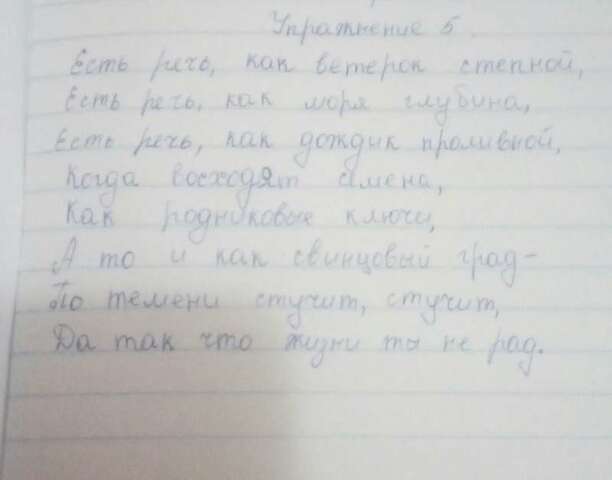 Упражнение 5
Есть речь, как ветерок степной,
Есть речь, как моря глубина,
Есть речь, как дождик проливной,
Когда восходят имена,
Как родниковые ключи,
А то и как свинцовый град-
По темени стучит, стучит,
Да так что жизни ты не рад.